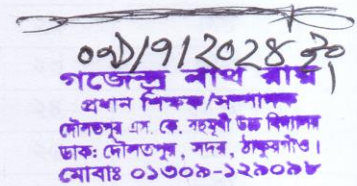 ০৩/৭/২০২৪ ইং
গজেন্দ্র নাথ রায়
প্রধান শিক্ষক/সম্পাদক
দৌলতপুর এস. কে. বহুমূখী উচ্চ বিদ্যালয়
ডাক: দৌলতপুর, সদর, ঠাকুরগাঁও।
মোবাঃ ০১৩০৯-১২৯০৯৮